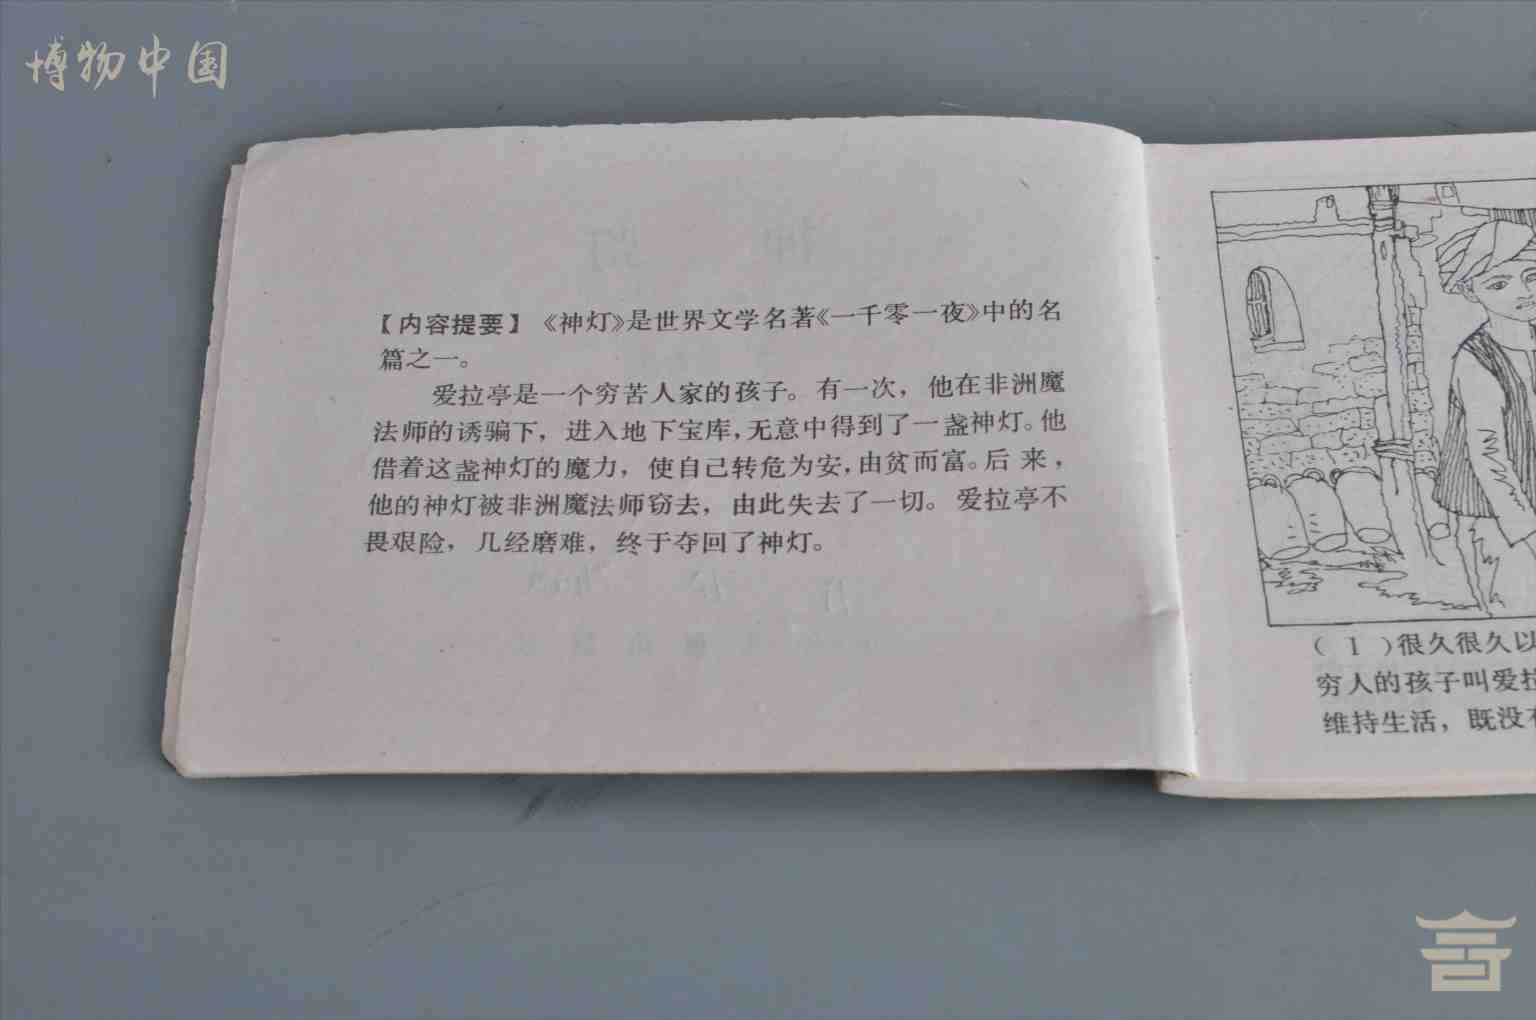 博物中国
【内容提要】《神灯》是世界文学名著《一千零一夜》中的名
篇之一。
爱拉亭是一个穷苦人家的孩子。有一次，他在非洲魔
法师的诱骗下，进入地下宝库，无意中得到了一盏神灯。他
借着这盏神灯的魔力，使自己转危为安，由贫而富。后来，
他的神灯被非洲魔法师窃去，由此失去了一切。爱拉亭不
畏艰险，几经磨难，终于夺回了神灯。
（1）很久很久以
穷人的孩子叫爱拉
维持生活，既没有